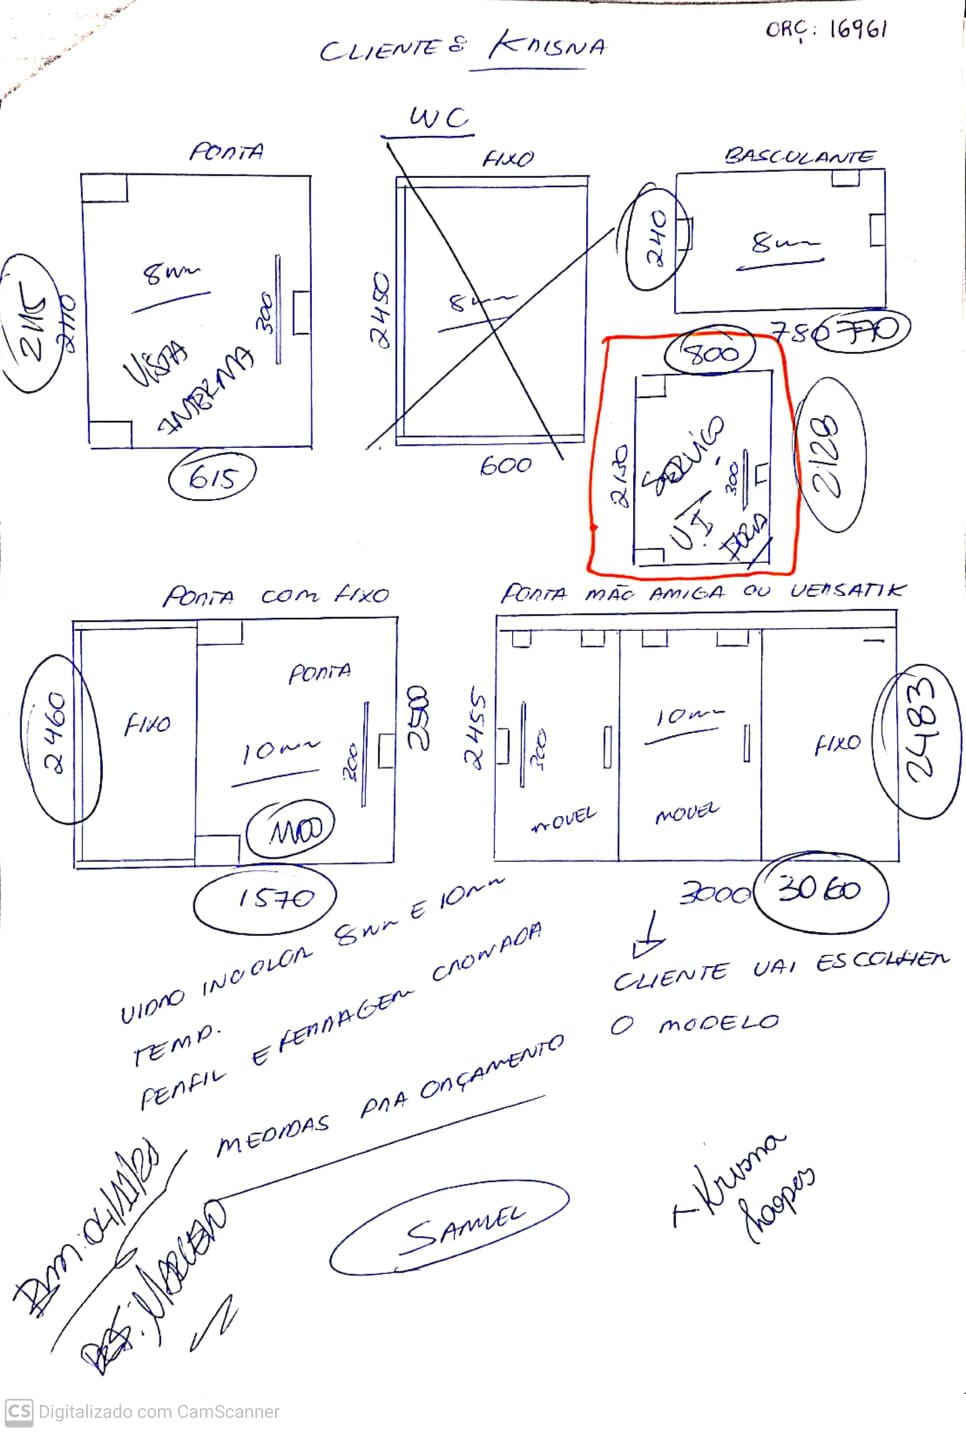 ORÇ: 16961
CLIENTE: KRISNA
WC
PORTA
FIXO
BASCULANTE
8mm
2115
2110
300
VISTA
INTERNA
615
2450
8mm
600
240
8mm
780 770
800
2130
SERVIÇO
300
V.I
2128
PORTA COM FIXO
PORTA MÃO AMIGA OU VERSATIK
2460
FIXO
PORTA
10mm
300
2500
1100
1570
2455
300
MOVEL
10mm
MOVEL
FIXO
2483
3000 3060
VIDRO INCOLOR 8mm E 10mm
TEMP.
PERFIL E FERRAGEM CROMADA
CLIENTE VAI ESCOLHER
O MODELO
MEDIDAS PRA ORÇAMENTO
SAMUEL
Krisna
RM: 04/11/20
RES: MARCELO
CS Digitalizado com CamScanner